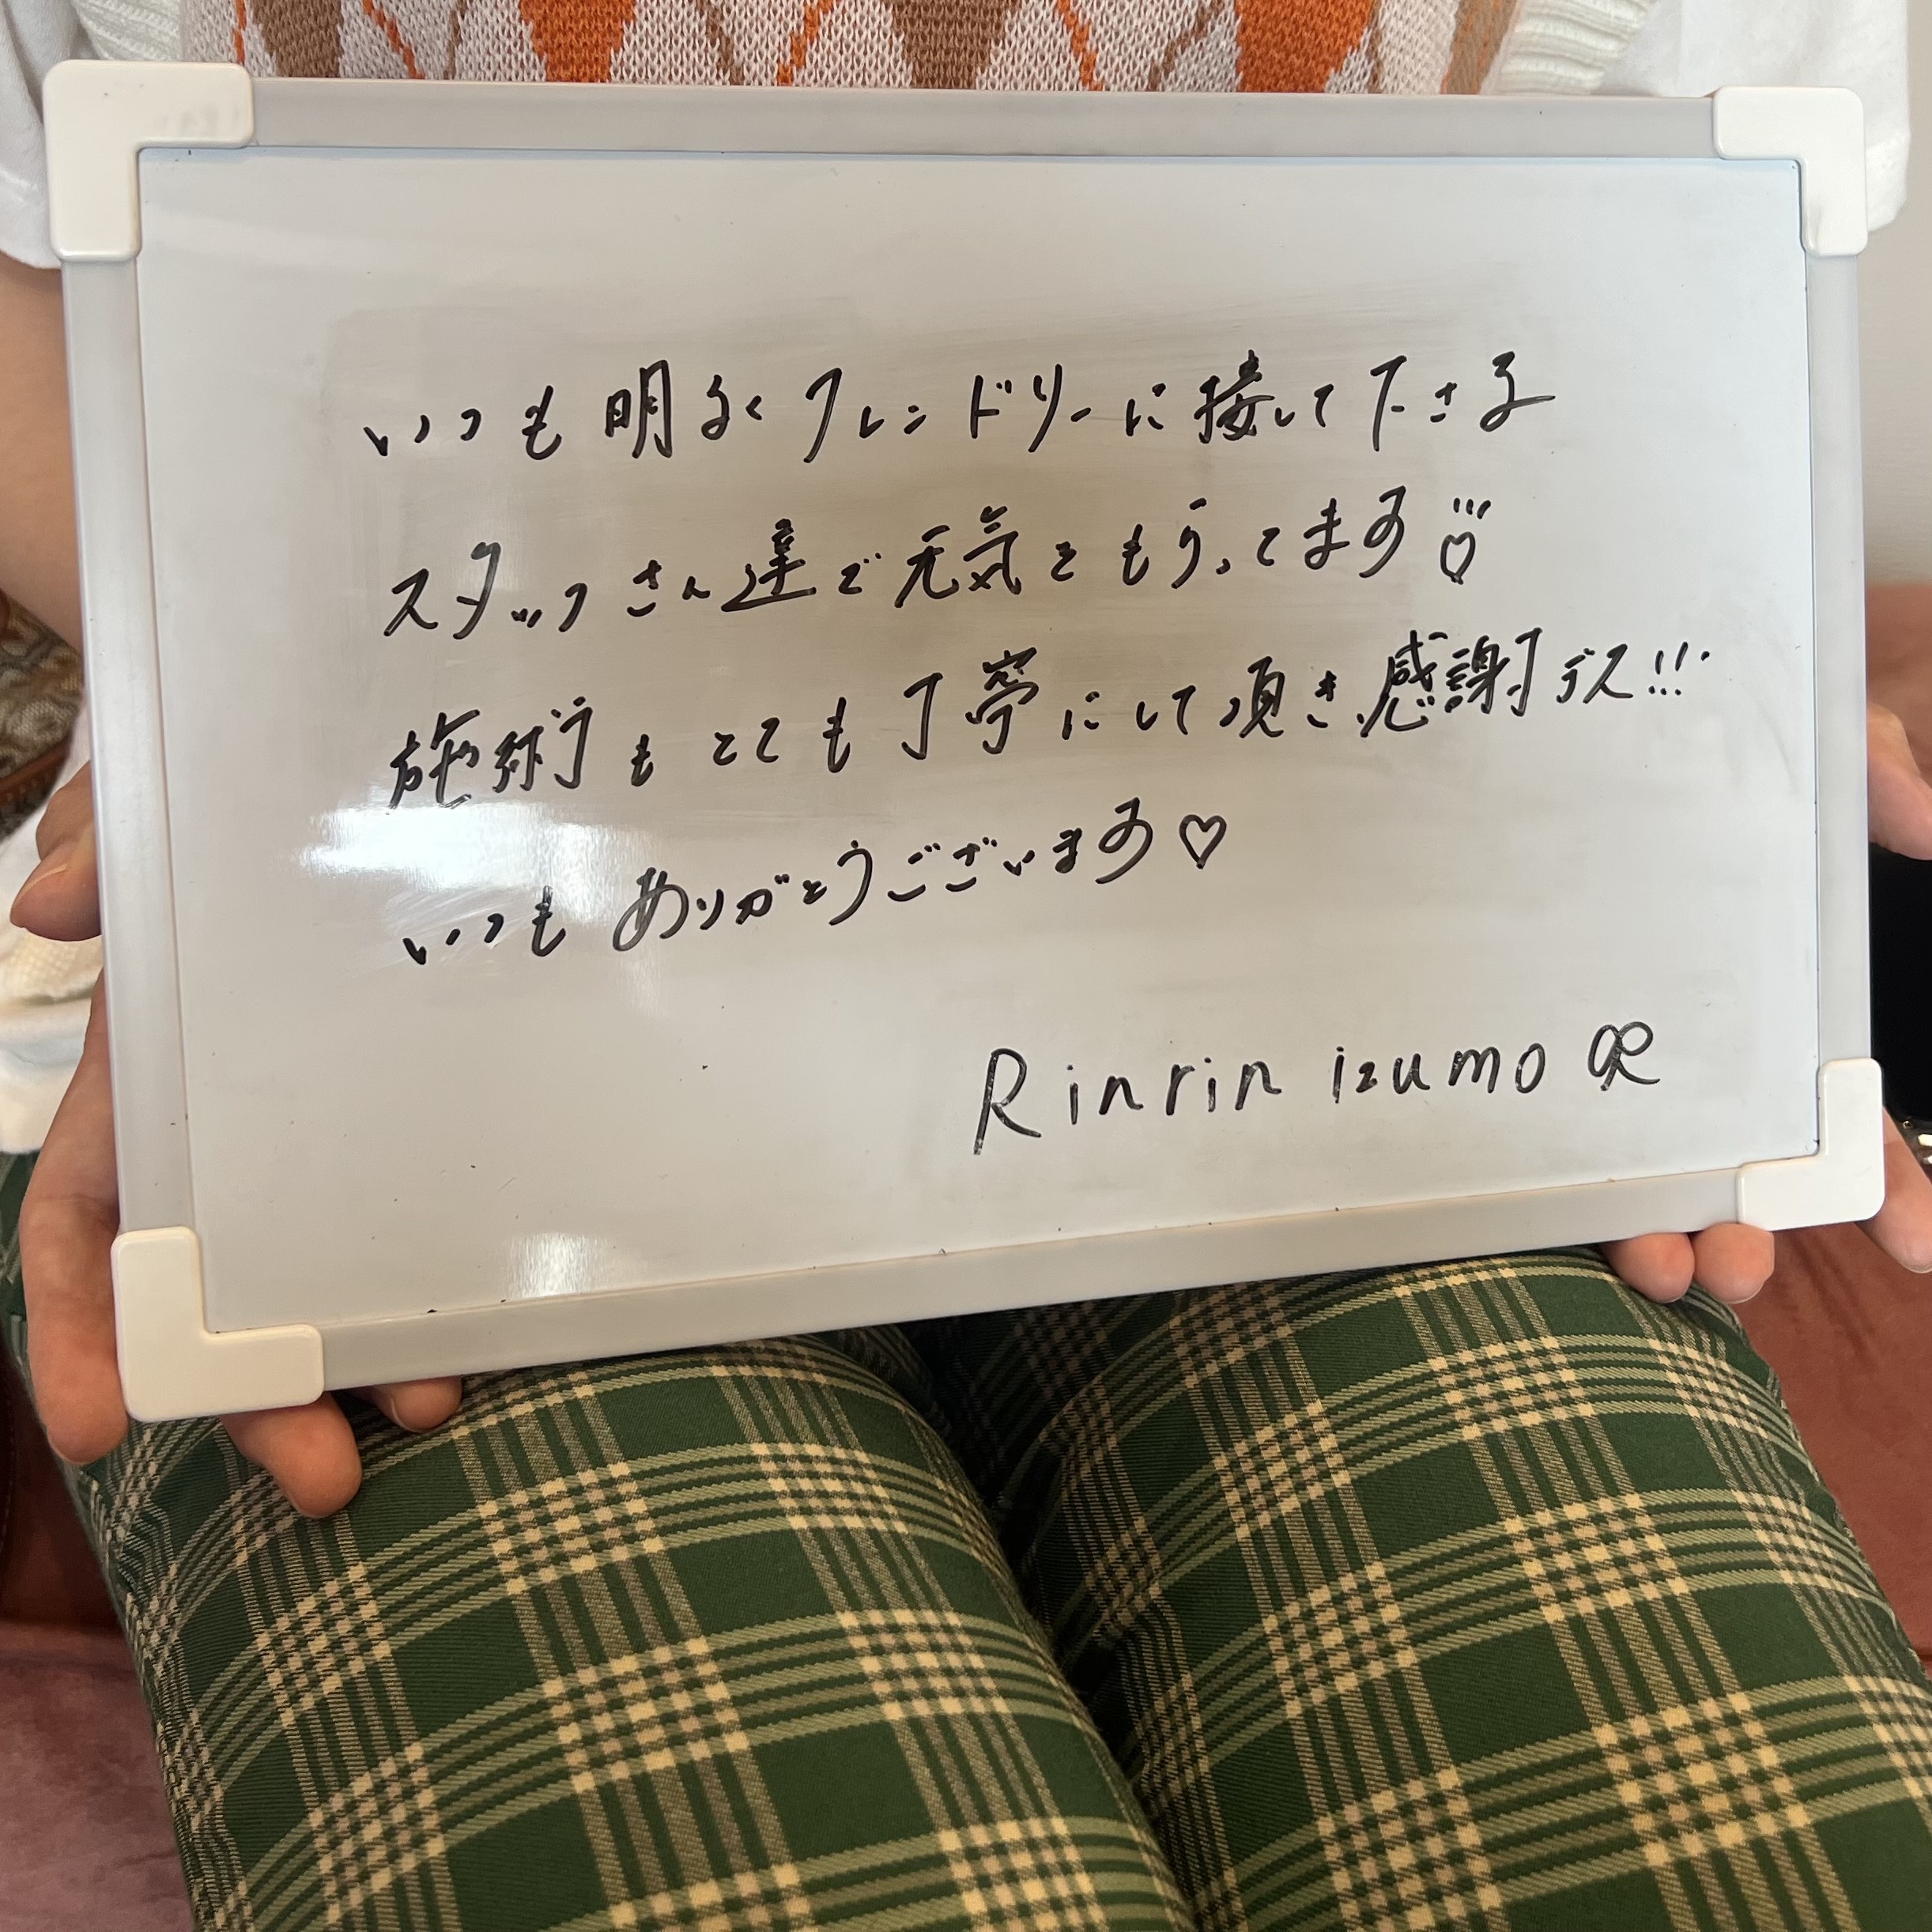 いつも明るくフレンドリーに接して下さる
スタッフさん達で元気をもらってます♡
施術もとても丁寧にして頂き感謝デス!!!
いつもありがとうございます♡
Rinrin izumo